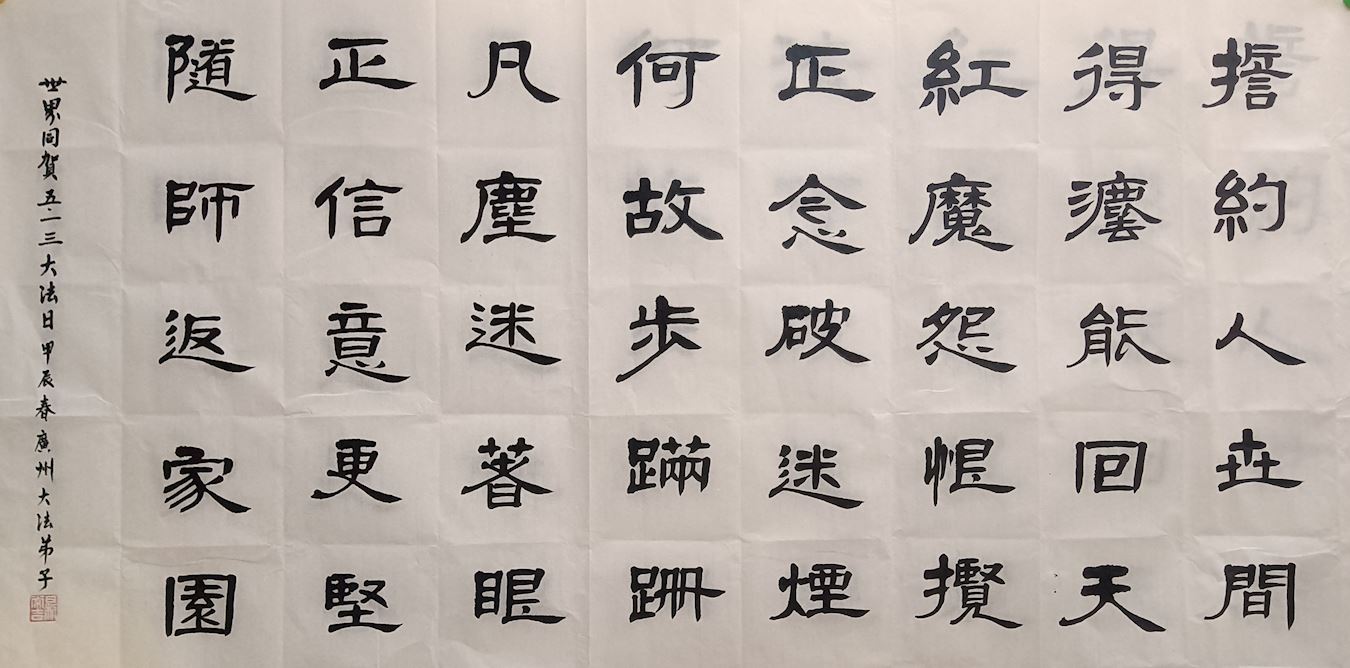 擔約人世間
得灋能回天
紅魔怨恨攬
正念破迷煙
何故步蹣跚
凡塵迷著眼
正信意更堅
隨師返家園
世界同賀五·一三大法日甲辰春廣州大法弟子